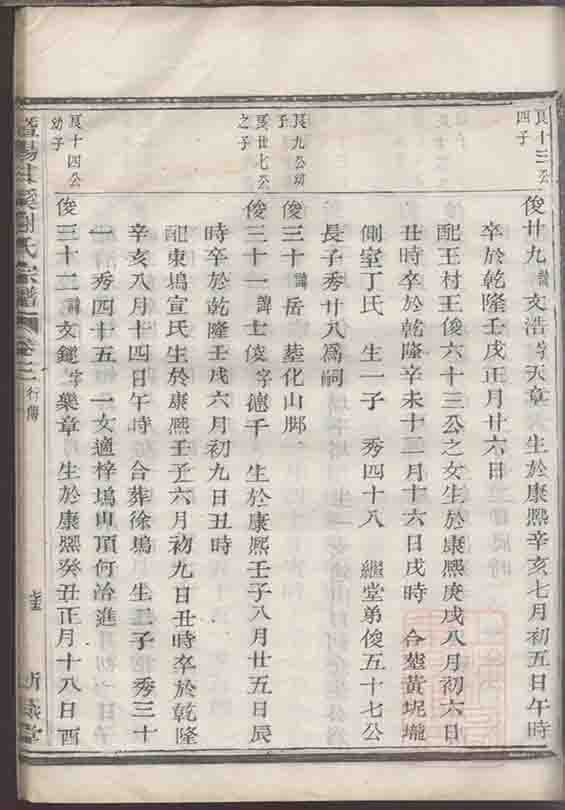 良十三公
四子
俊廿九 諱文浩字天章 生於康熙辛亥七月初五日午時
卒於乾隆壬戌正月廿六日
配王村王俊六十三公之女生於康熙庚戌八月初六日
丑時卒於乾隆辛未十二月十六日戌時 合塟黃坭壠
側室丁氏 生一子 秀四十八 繼堂弟俊五十七公
長子秀廿八爲嗣
良九公幼
子
俊三十 諱岳 塟化山脚
良廿七公
之子
俊三十一 諱士俊字德千 生於康熙壬子八月廿五日辰
時卒於乾隆壬戌六月初九日丑時
配東塢宣氏生於康熙壬子六月初九日丑時卒於乾隆
辛亥八月十四日午時 合葬徐塢 生二子 秀三十
一 秀四十五 一女適梓塢山頂何治進
良十四公
幼子
俊三十二 諱文鍾字樂章 生於康熙癸丑正月十八日酉
暨陽 溪劉氏宗譜 卷三 行傳